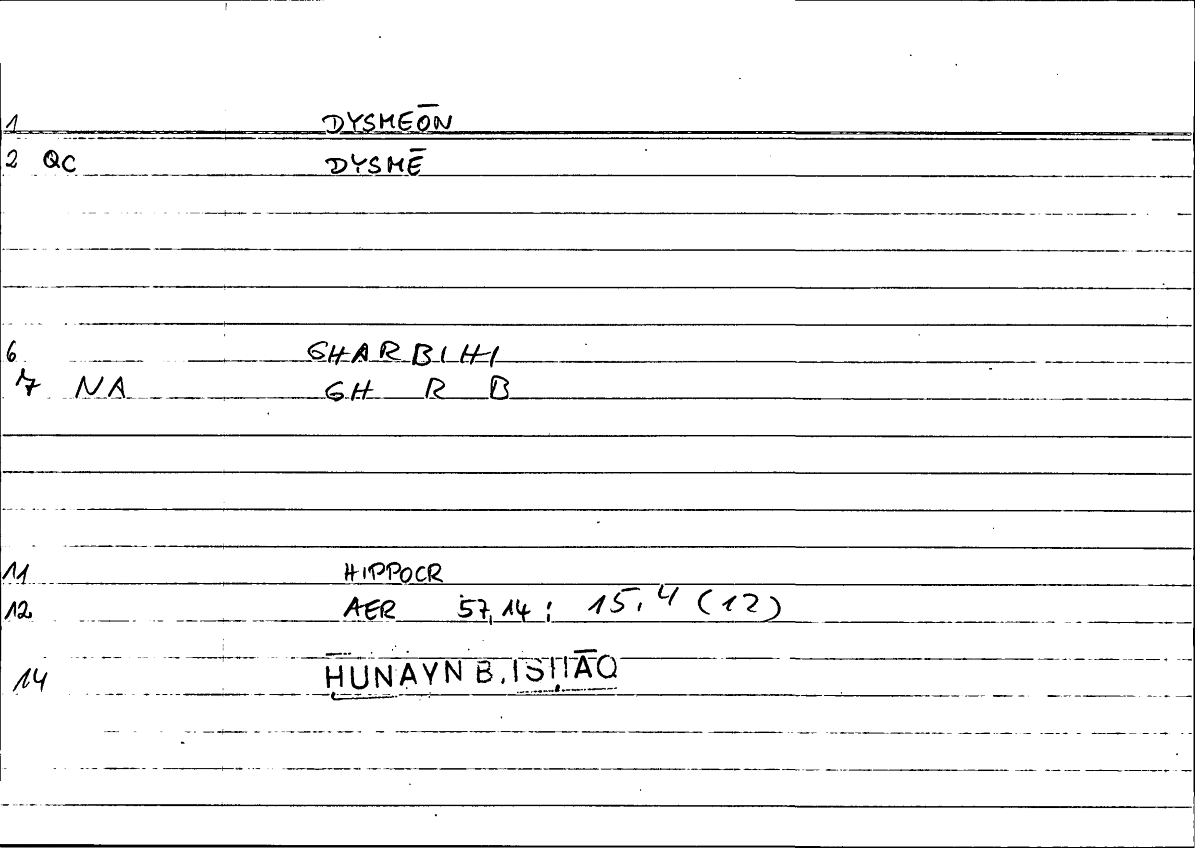 1 DYSMEŌN
2 QC DYSMĒ
6 GHARBIHI
7 NA GH R B
11 HIPPOCR
12 AER 57,14 ; 15,4 (12)
14 ḤUNAYN B. ISḤĀQ